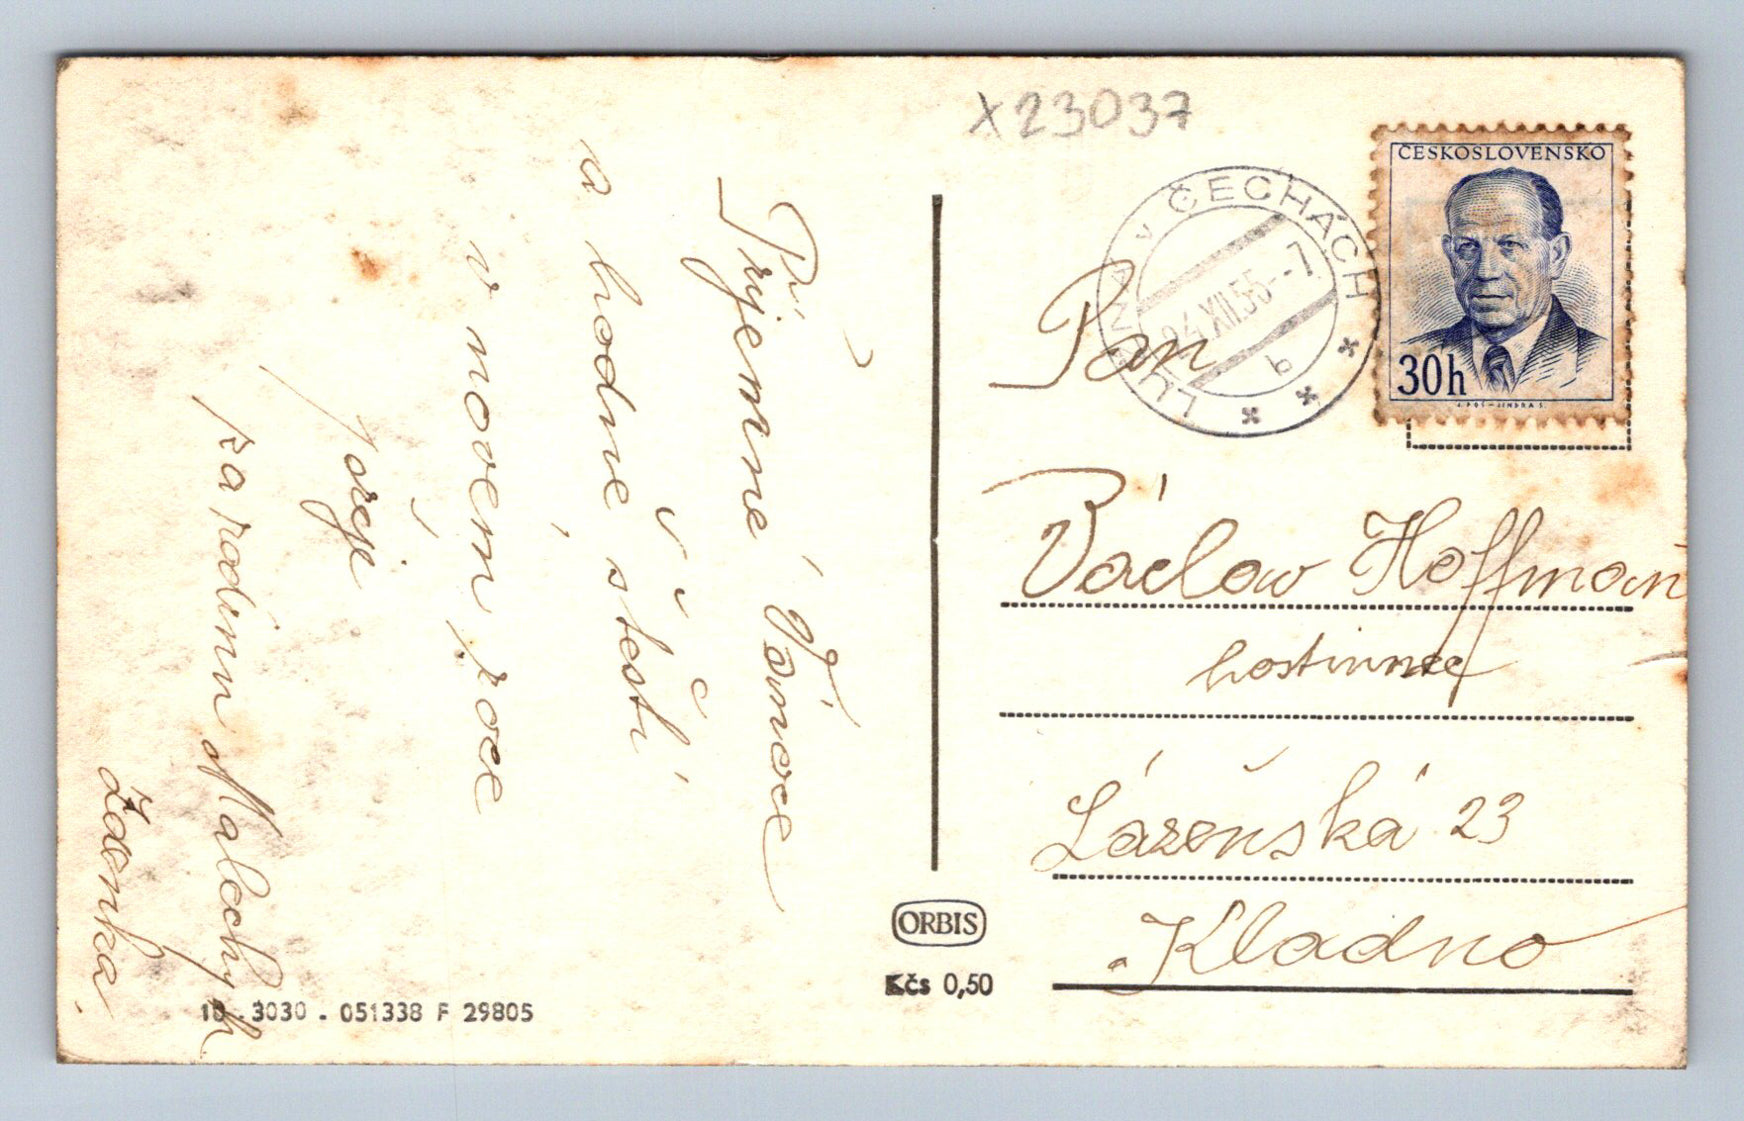 X23037
Příjemné Vánoce
a hodně štěstí
v novém roce
přeje
za rodinu Malechých
Zdenka
10 - 3030 - 051338 F 29805
ORBIS
Kčs 0,50
ČESKOSLOVENSKO
30h
LUŽNÁ V ČECHÁCH
24.XII.55--7
b
Pan
Václav Hoffman
hostinec
Lázeňská 23
Kladno